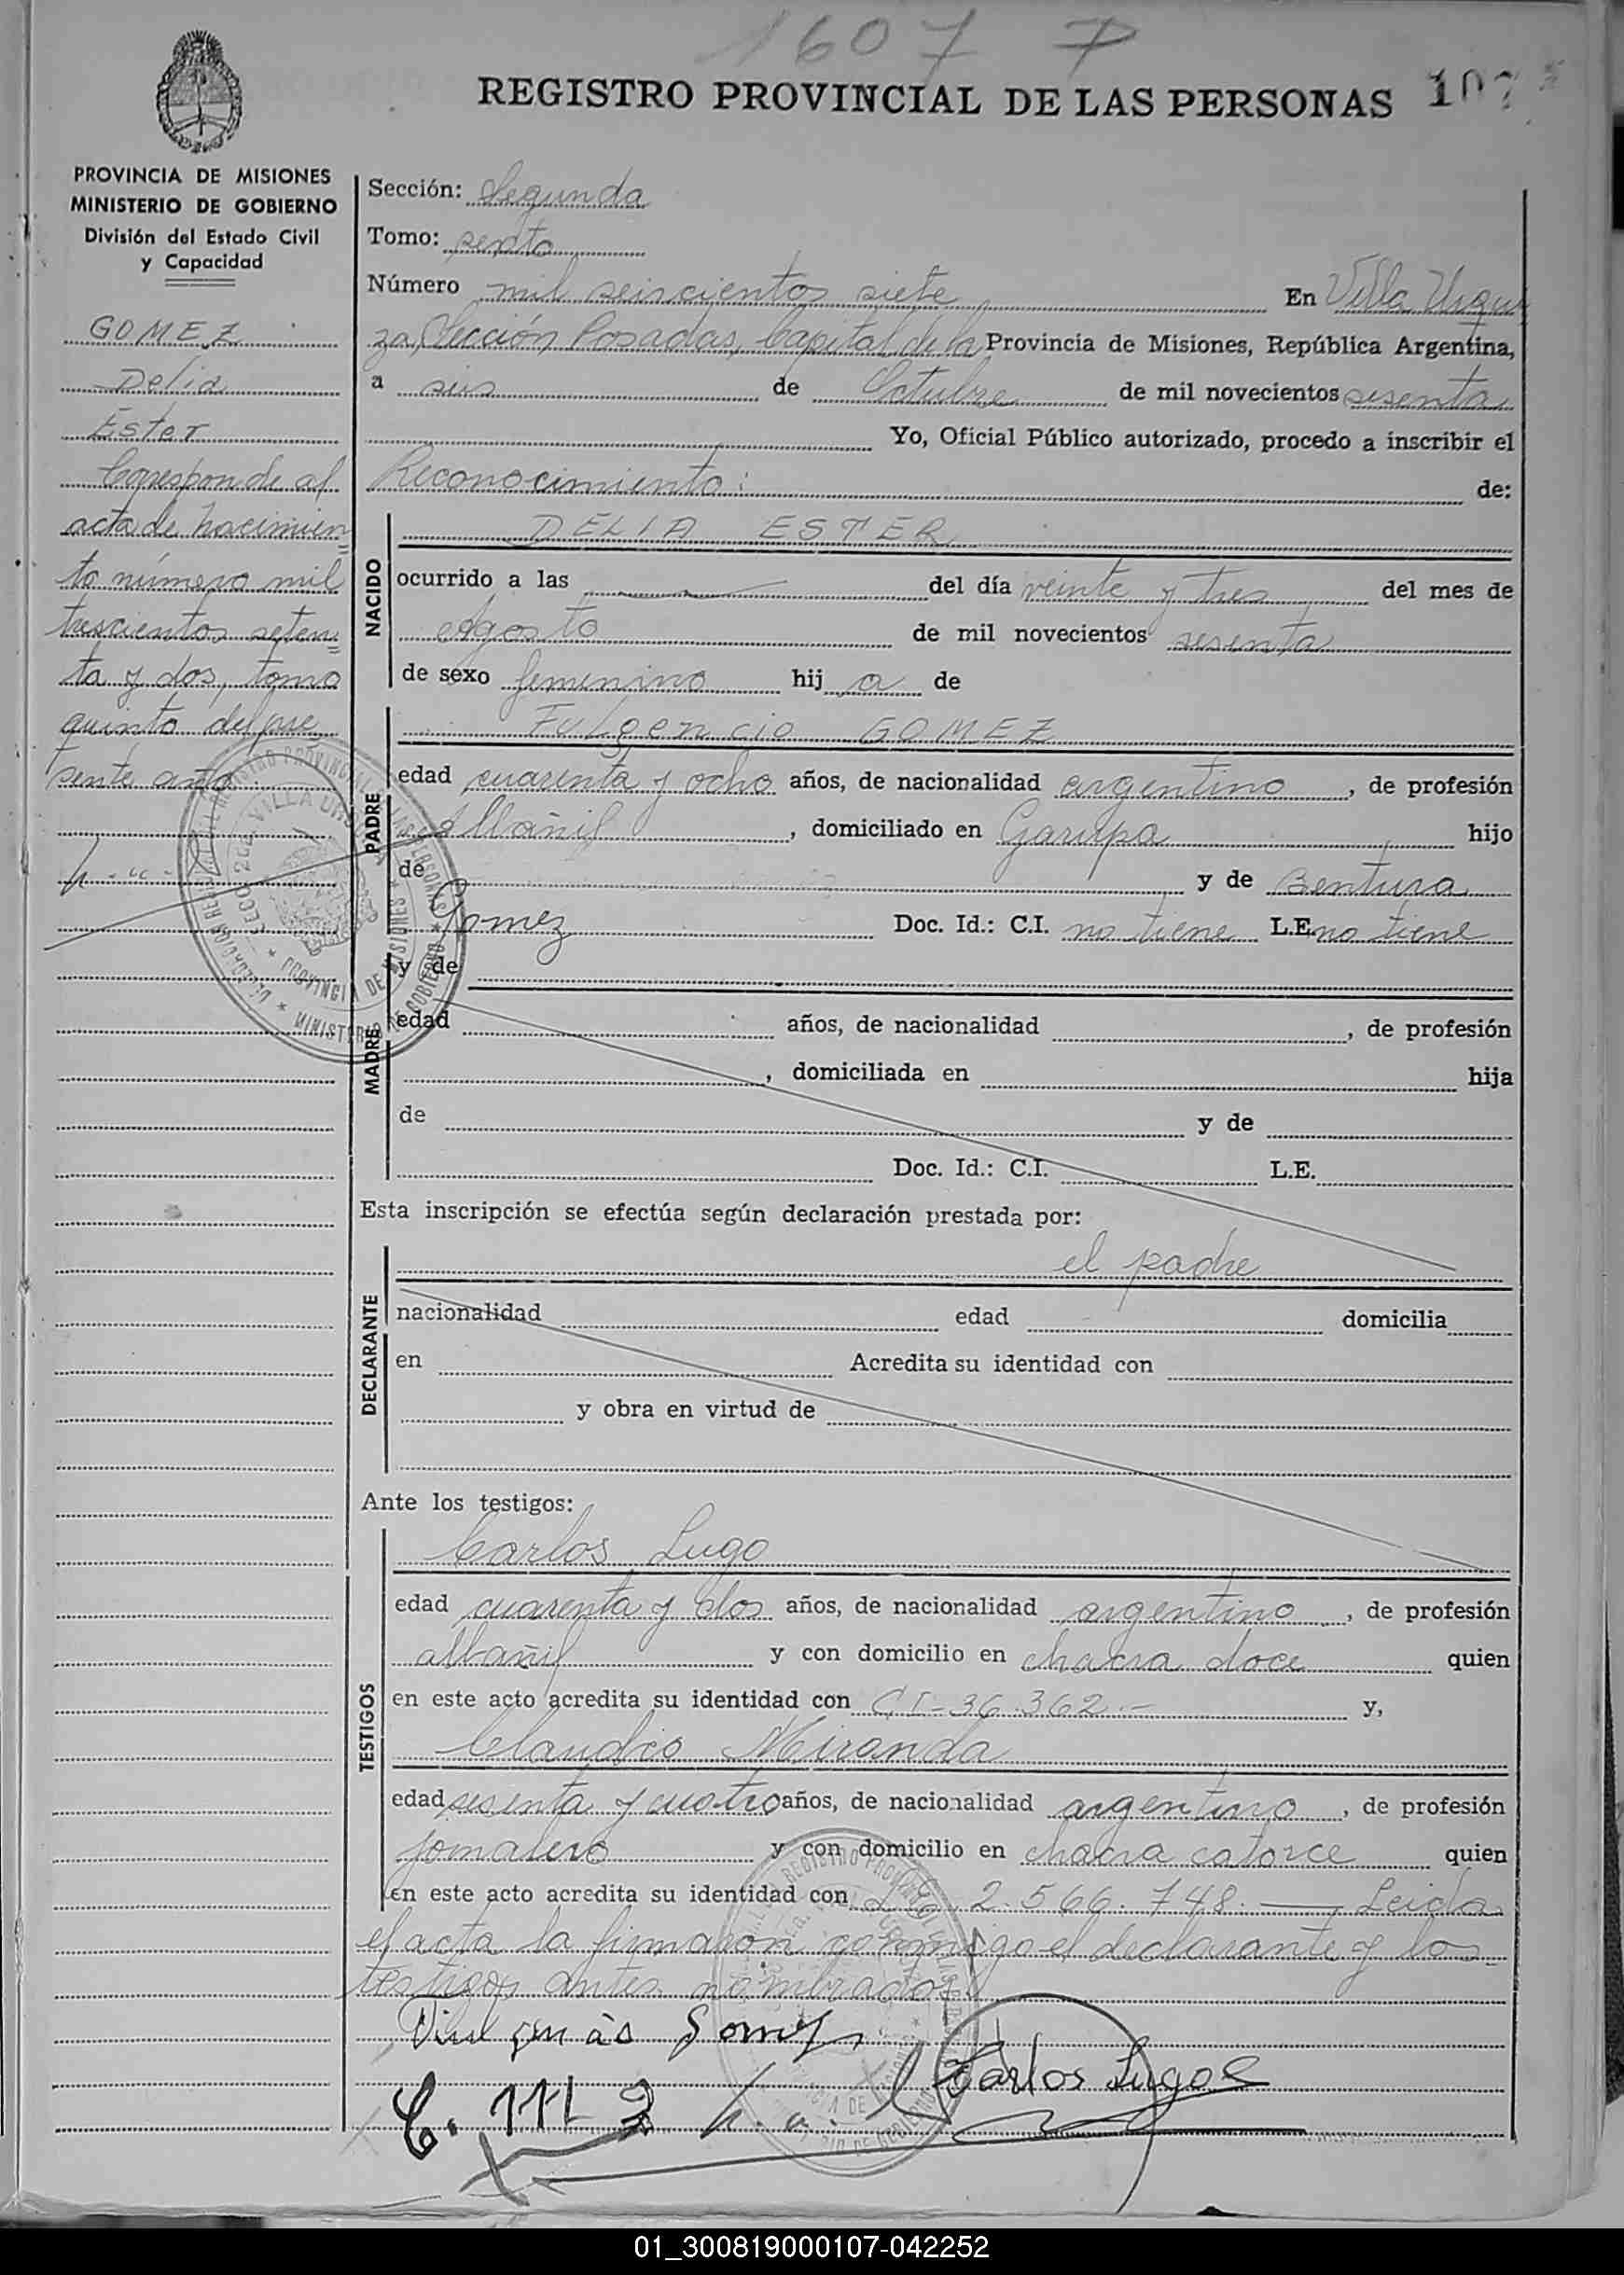 1607
REGISTRO PROVINCIAL DE LAS PERSONAS
PROVINCIA DE MISIONES
MINISTERIO DE GOBIERNO
División del Estado Civil
y Capacidad
GOMEZ
Delia
Ester
Corresponde al
acta de nacimien
to número mil
trescientos seten
ta y dos, tomo
quinto del pre
sente año
Sección: Segunda
Tomo: sexto
Número mil seiscientos siete En Villa Urqui
za, Sección Posadas, Capital de la Provincia de Misiones, República Argentina,
a seis de Octubre de mil novecientos sesenta
Yo, Oficial Público autorizado, procedo a inscribir el
Reconocimiento: de:
NACIDO
DELIA ESTER
ocurrido a las del día veinte y tres del mes de
Agosto de mil novecientos sesenta
de sexo femenino hij a de
PADRE
Fulgencio GOMEZ
edad cuarenta y ocho años, de nacionalidad argentino, de profesión
albañil, domiciliado en Garupa hijo
de y de Bentura
Gomez Doc. Id.: C.I. no tiene L.E. no tiene
y de
MADRE
edad años, de nacionalidad , de profesión
, domiciliada en hija
de y de
Doc. Id.: C.I. L.E.
Esta inscripción se efectúa según declaración prestada por:
DECLARANTE
el padre
nacionalidad edad domicilia
en Acredita su identidad con
y obra en virtud de
Ante los testigos:
TESTIGOS
Carlos Lugo
edad cuarenta y dos años, de nacionalidad argentino, de profesión
albañil y con domicilio en chacra doce quien
en este acto acredita su identidad con CI-36.362.- y,
Claudio Miranda
edad sesenta y cuatro años, de nacionalidad argentino, de profesión
jornalero y con domicilio en chacra catorce quien
en este acto acredita su identidad con L.E. 2.566.748.— Leida
el acta la firmaron conmigo el declarante y los
testigos antes nombrados
Carlos Lugo
01_300819000107-042252